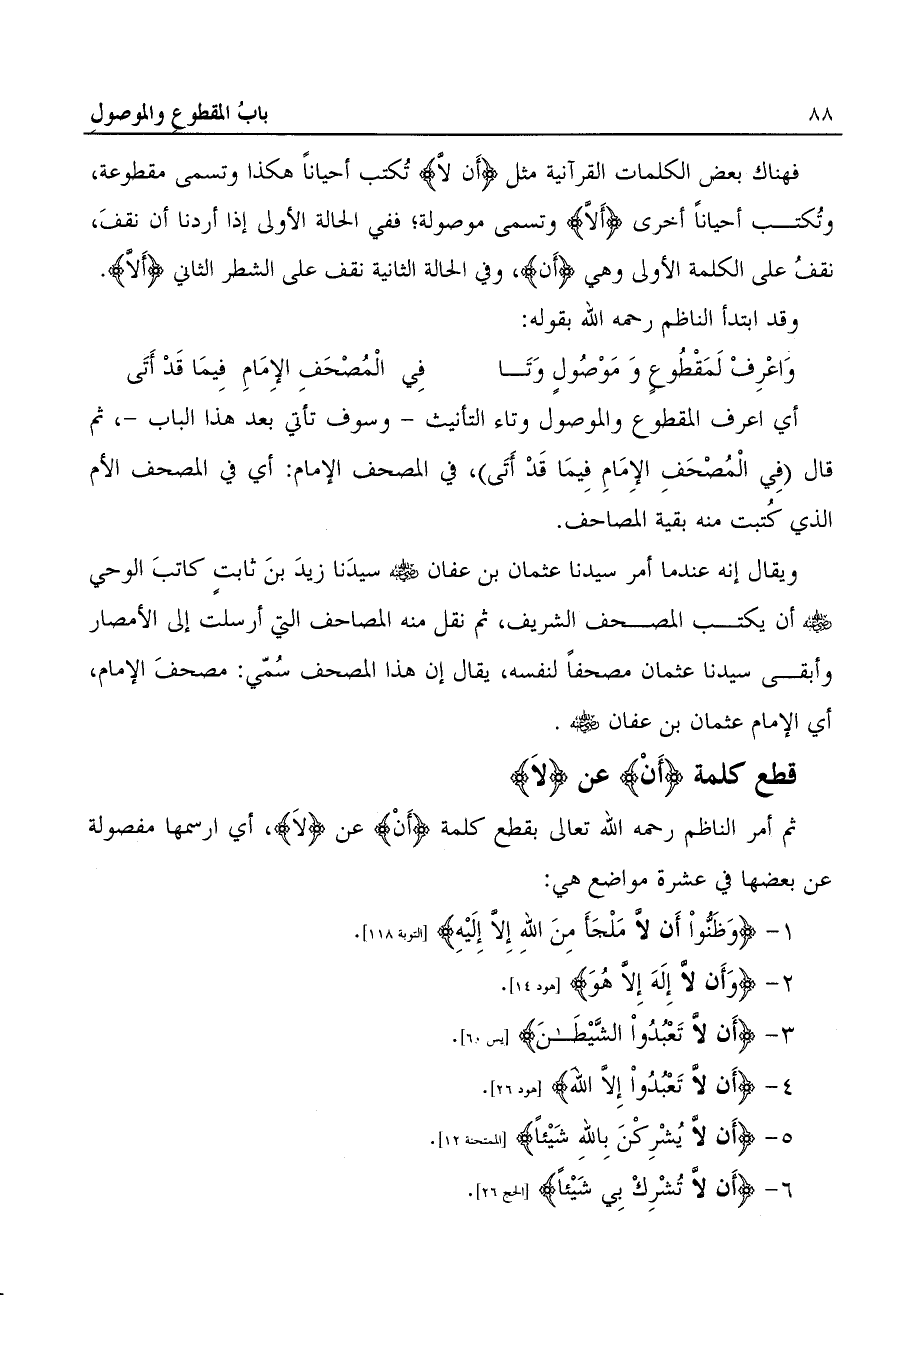 ٨٨ بابُ المقطوعِ والموصولِ
فهناك بعض الكلمات القرآنية مثل ﴿أَن لاَّ﴾ تُكتب أحياناً هكذا وتسمى مقطوعة،
وتُكتــب أحياناً أخرى ﴿أَلاَّ﴾ وتسمى موصولة؛ ففي الحالة الأولى إذا أردنا أن نقفَ،
نقفُ على الكلمة الأولى وهي ﴿أَن﴾، وفي الحالة الثانية نقف على الشطر الثاني ﴿أَلاَّ﴾.
وقد ابتدأ الناظم رحمه الله بقوله:
وَاعْرِفْ لَمَقْطُوعٍ وَ مَوْصُولٍ وَتَــا فِي الْمُصْحَفِ الإِمَامِ فِيمَا قَدْ أَتَى
أي اعرف المقطوع والموصول وتاء التأنيث – وسوف تأتي بعد هذا الباب –، ثم
قال (فِي الْمُصْحَفِ الإِمَامِ فِيمَا قَدْ أَتَى)، في المصحف الإمام: أي في المصحف الأم
الذي كُتبت منه بقية المصاحف.
ويقال إنه عندما أمر سيدنا عثمان بن عفان ﵁ سيدَنا زيدَ بنَ ثابتٍ كاتبَ الوحي
﵁ أن يكتــب المصــحف الشريف، ثم نقل منه المصاحف التي أرسلت إلى الأمصار
وأبقــى سيدنا عثمان مصحفاً لنفسه، يقال إن هذا المصحف سُمّي: مصحفَ الإمام،
أي الإمام عثمان بن عفان ﵁ .
قطع كلمة ﴿أَنْ﴾ عن ﴿لاَ﴾
ثم أمر الناظم رحمه الله تعالى بقطع كلمة ﴿أَنْ﴾ عن ﴿لاَ﴾، أي ارسمها مفصولة
عن بعضها في عشرة مواضع هي:
١- ﴿وَظَنُّواْ أَن لاَّ مَلْجَأَ مِنَ اللهِ إِلاَّ إِلَيْهِ﴾ [التوبة ١١٨].
٢- ﴿وَأَن لاَّ إِلَهَ إِلاَّ هُوَ﴾ [هود ١٤].
٣- ﴿أَن لاَّ تَعْبُدُواْ الشَّيْطَـٰنَ﴾ [يس ٦٠].
٤- ﴿أَن لاَّ تَعْبُدُواْ إِلاَّ اللهَ﴾ [هود ٢٦].
٥- ﴿أَن لاَّ يُشْرِكْنَ بِاللهِ شَيْئاً﴾ [الممتحنة ١٢].
٦- ﴿أَن لاَّ تُشْرِكْ بِي شَيْئاً﴾ [الحج ٢٦].